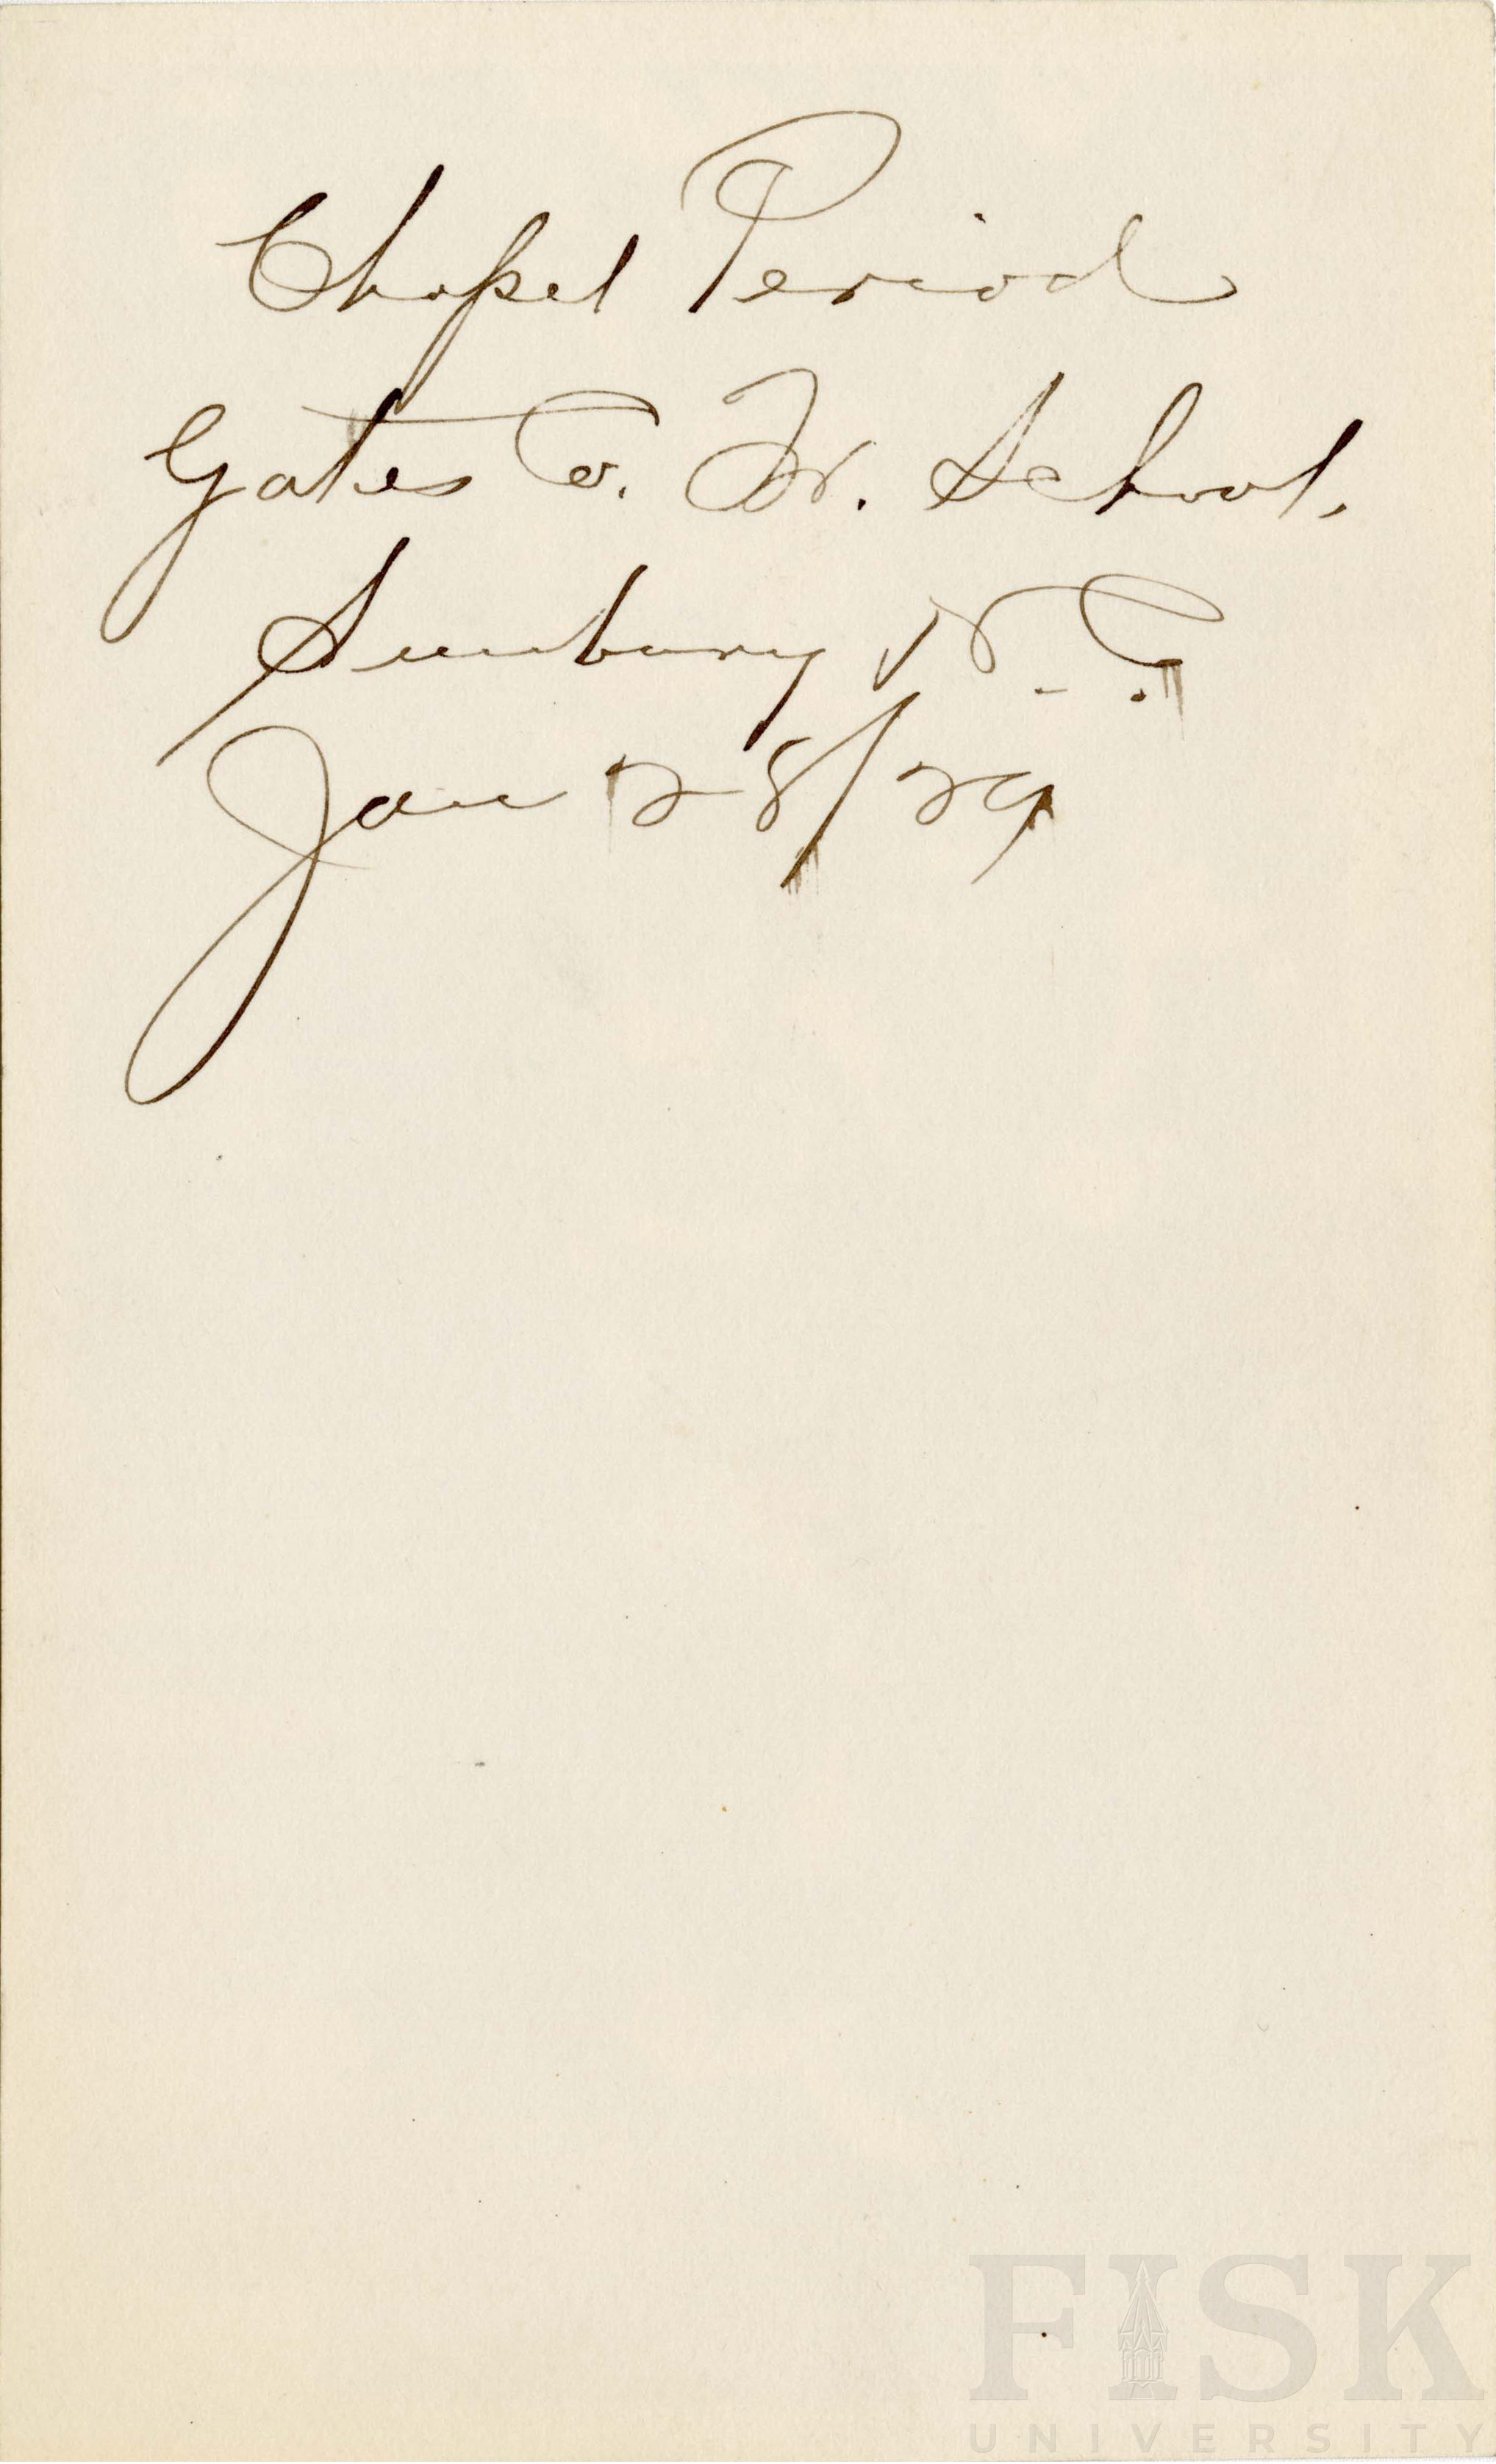 Chapel Period
Gates Co. Tr. School,
Sunbury N. C.
Jan 28/29
FISK
UNIVERSITY